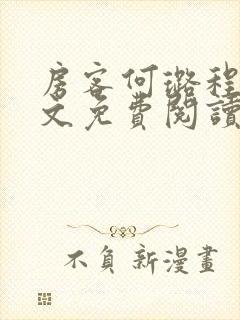 房客何璐程
文免費閱讀
不負新漫畫